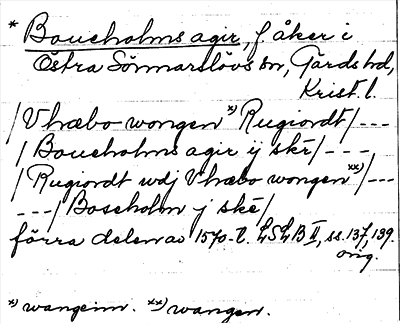 * Boueholms agir, f åker i
Östra Sönnarslövs sn, Gärds hd,
Krist. l.
/Vhæbo wongen x) Rugiordt/---
/Boueholms agir ij ské/---
/Rugiordt wdj Vhæbo wongen xx)/---
---/Boseholm j ské/
förra delen av 1570-t. LSLB II, ss. 137, 139.
orig.
x) wangeinn. xx) wangen.